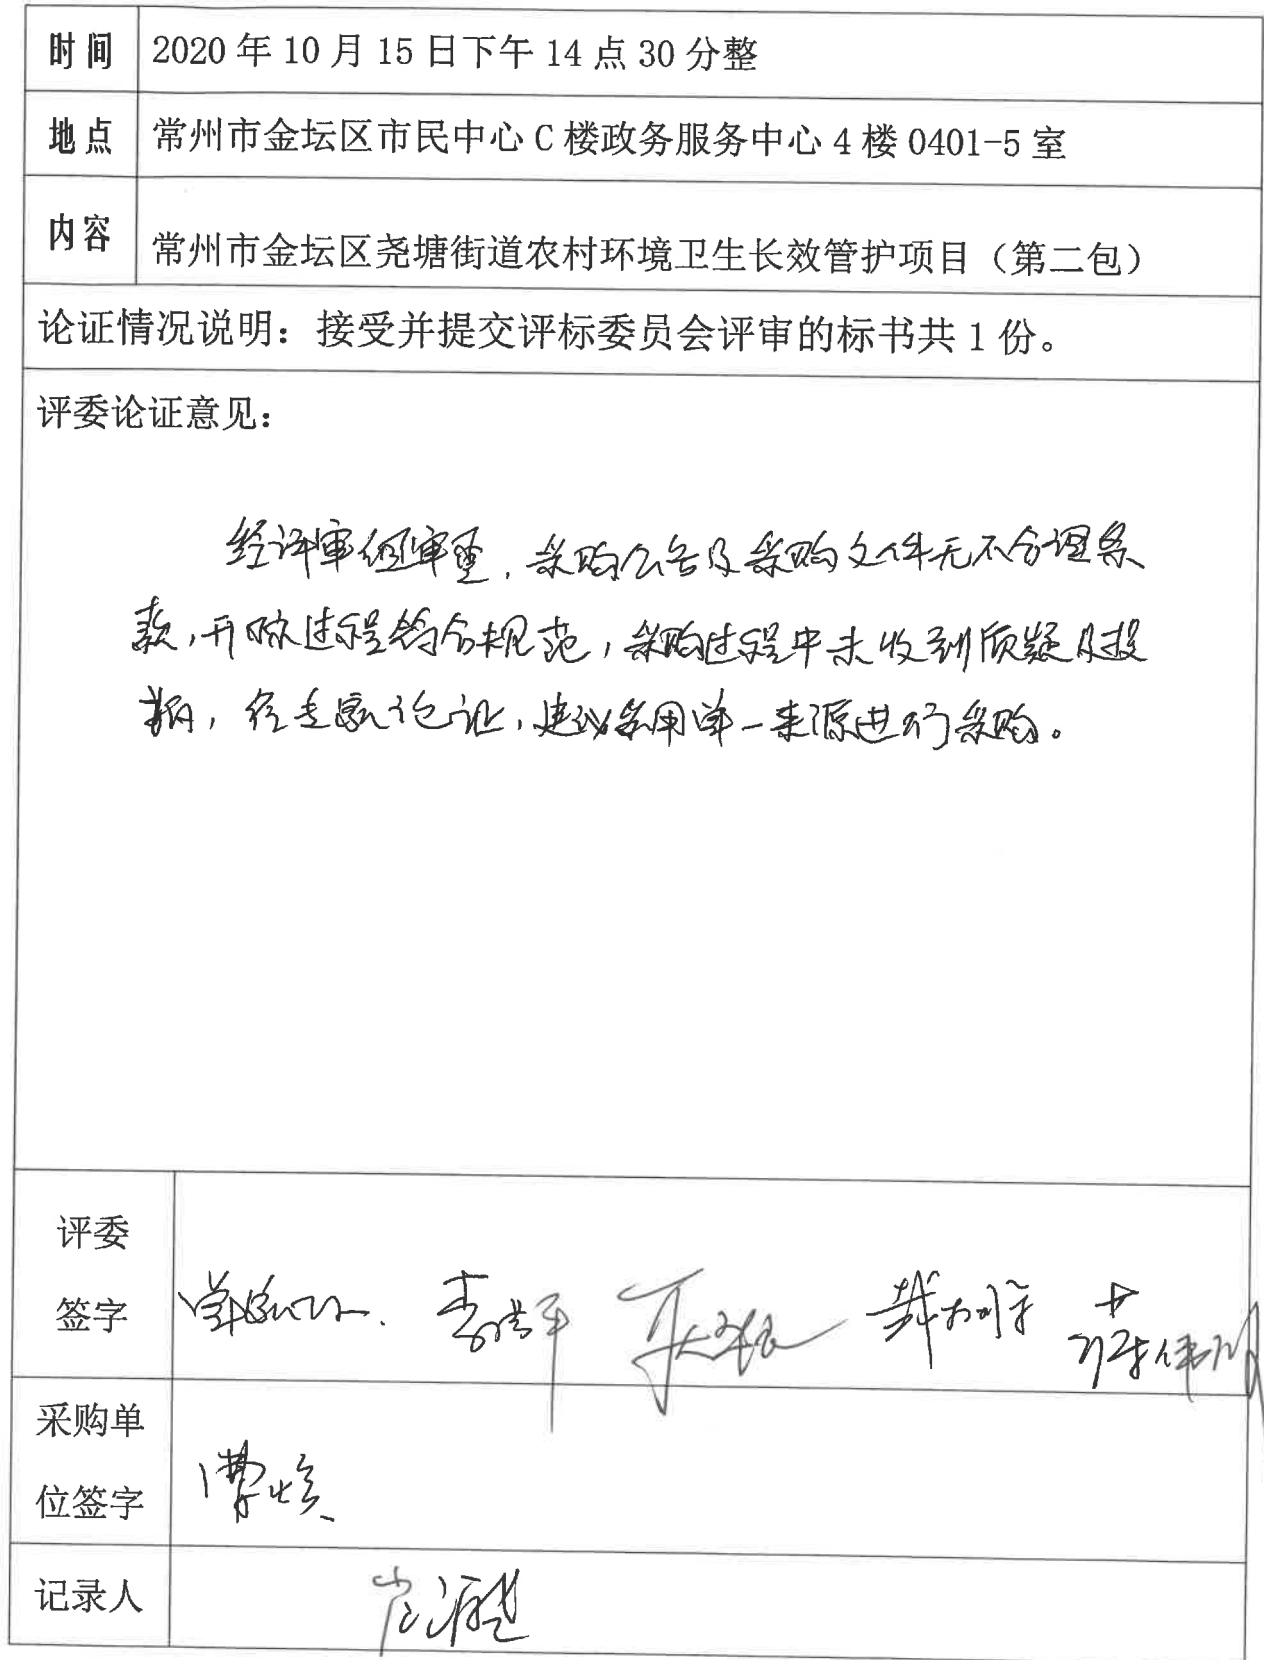 时间 2020年10月15日下午14点30分整
地点 常州市金坛区市民中心C楼政务服务中心4楼0401-5室
内容 常州市金坛区尧塘街道农村环境卫生长效管护项目（第二包）
论证情况说明：接受并提交评标委员会评审的标书共1份。
评委论证意见：
经评审组审查，采购公告及采购文件无不合理条
款，开标过程符合规范，采购过程中未收到质疑及投
诉，经专家论证，建议采用单一来源进行采购。
评委
签字
采购单
位签字
记录人